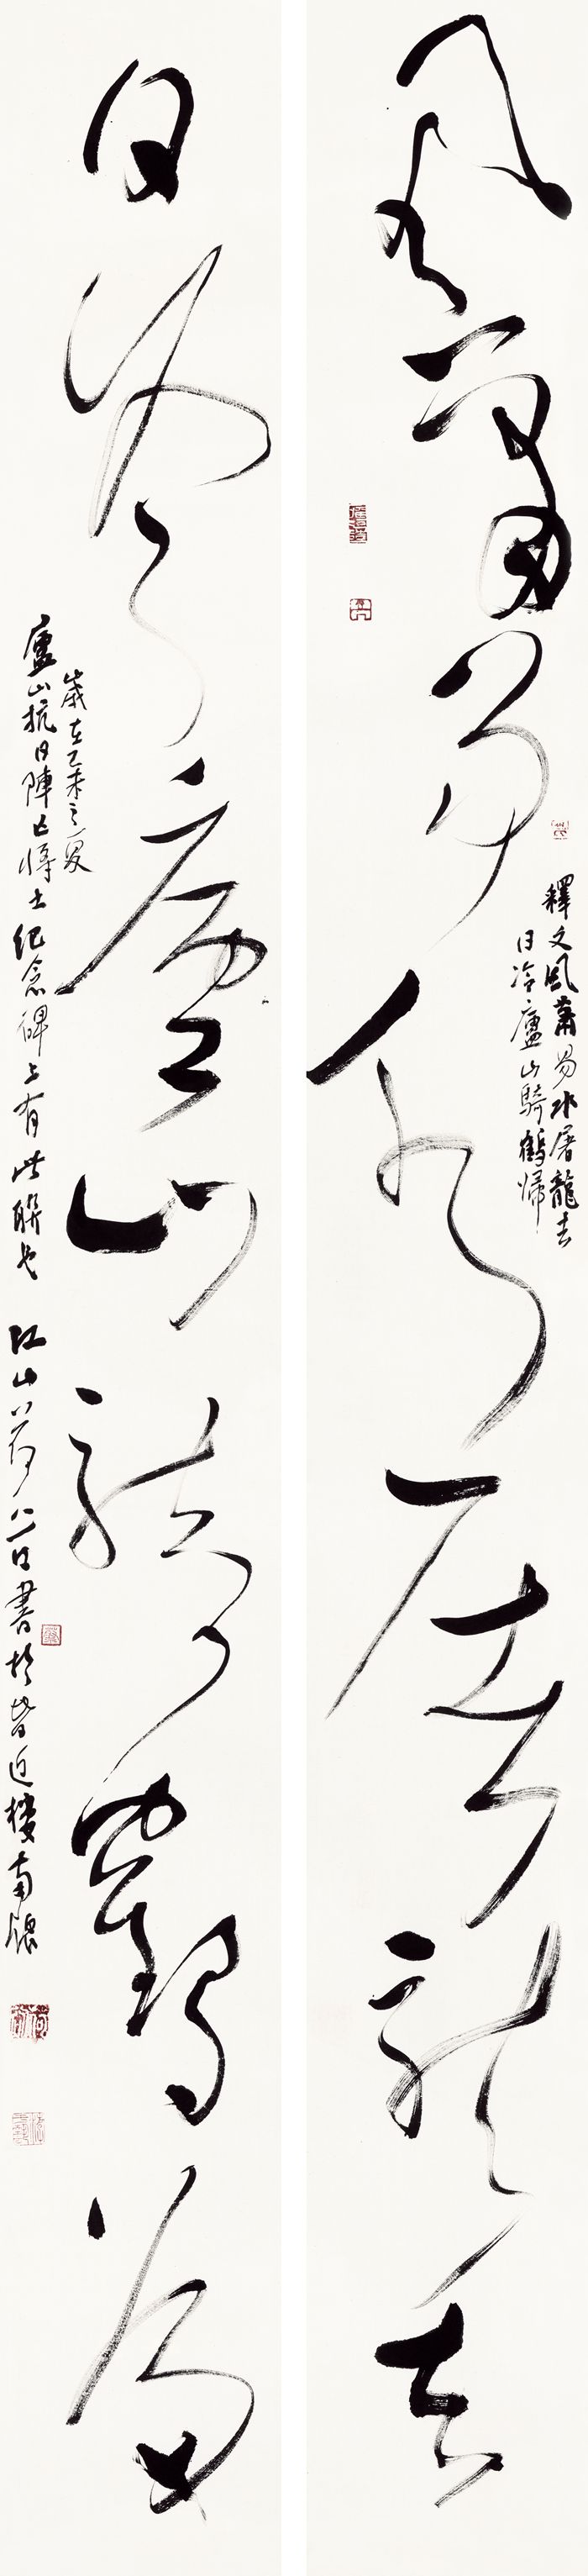 風蕭易水屠龍去
釋文風蕭易水屠龍去
日冷廬山騎鶴歸
日冷廬山騎鶴歸
歲在乙未之夏
廬山抗日陣亡將士紀念碑上有此聯也 江山 書於皆近樓南